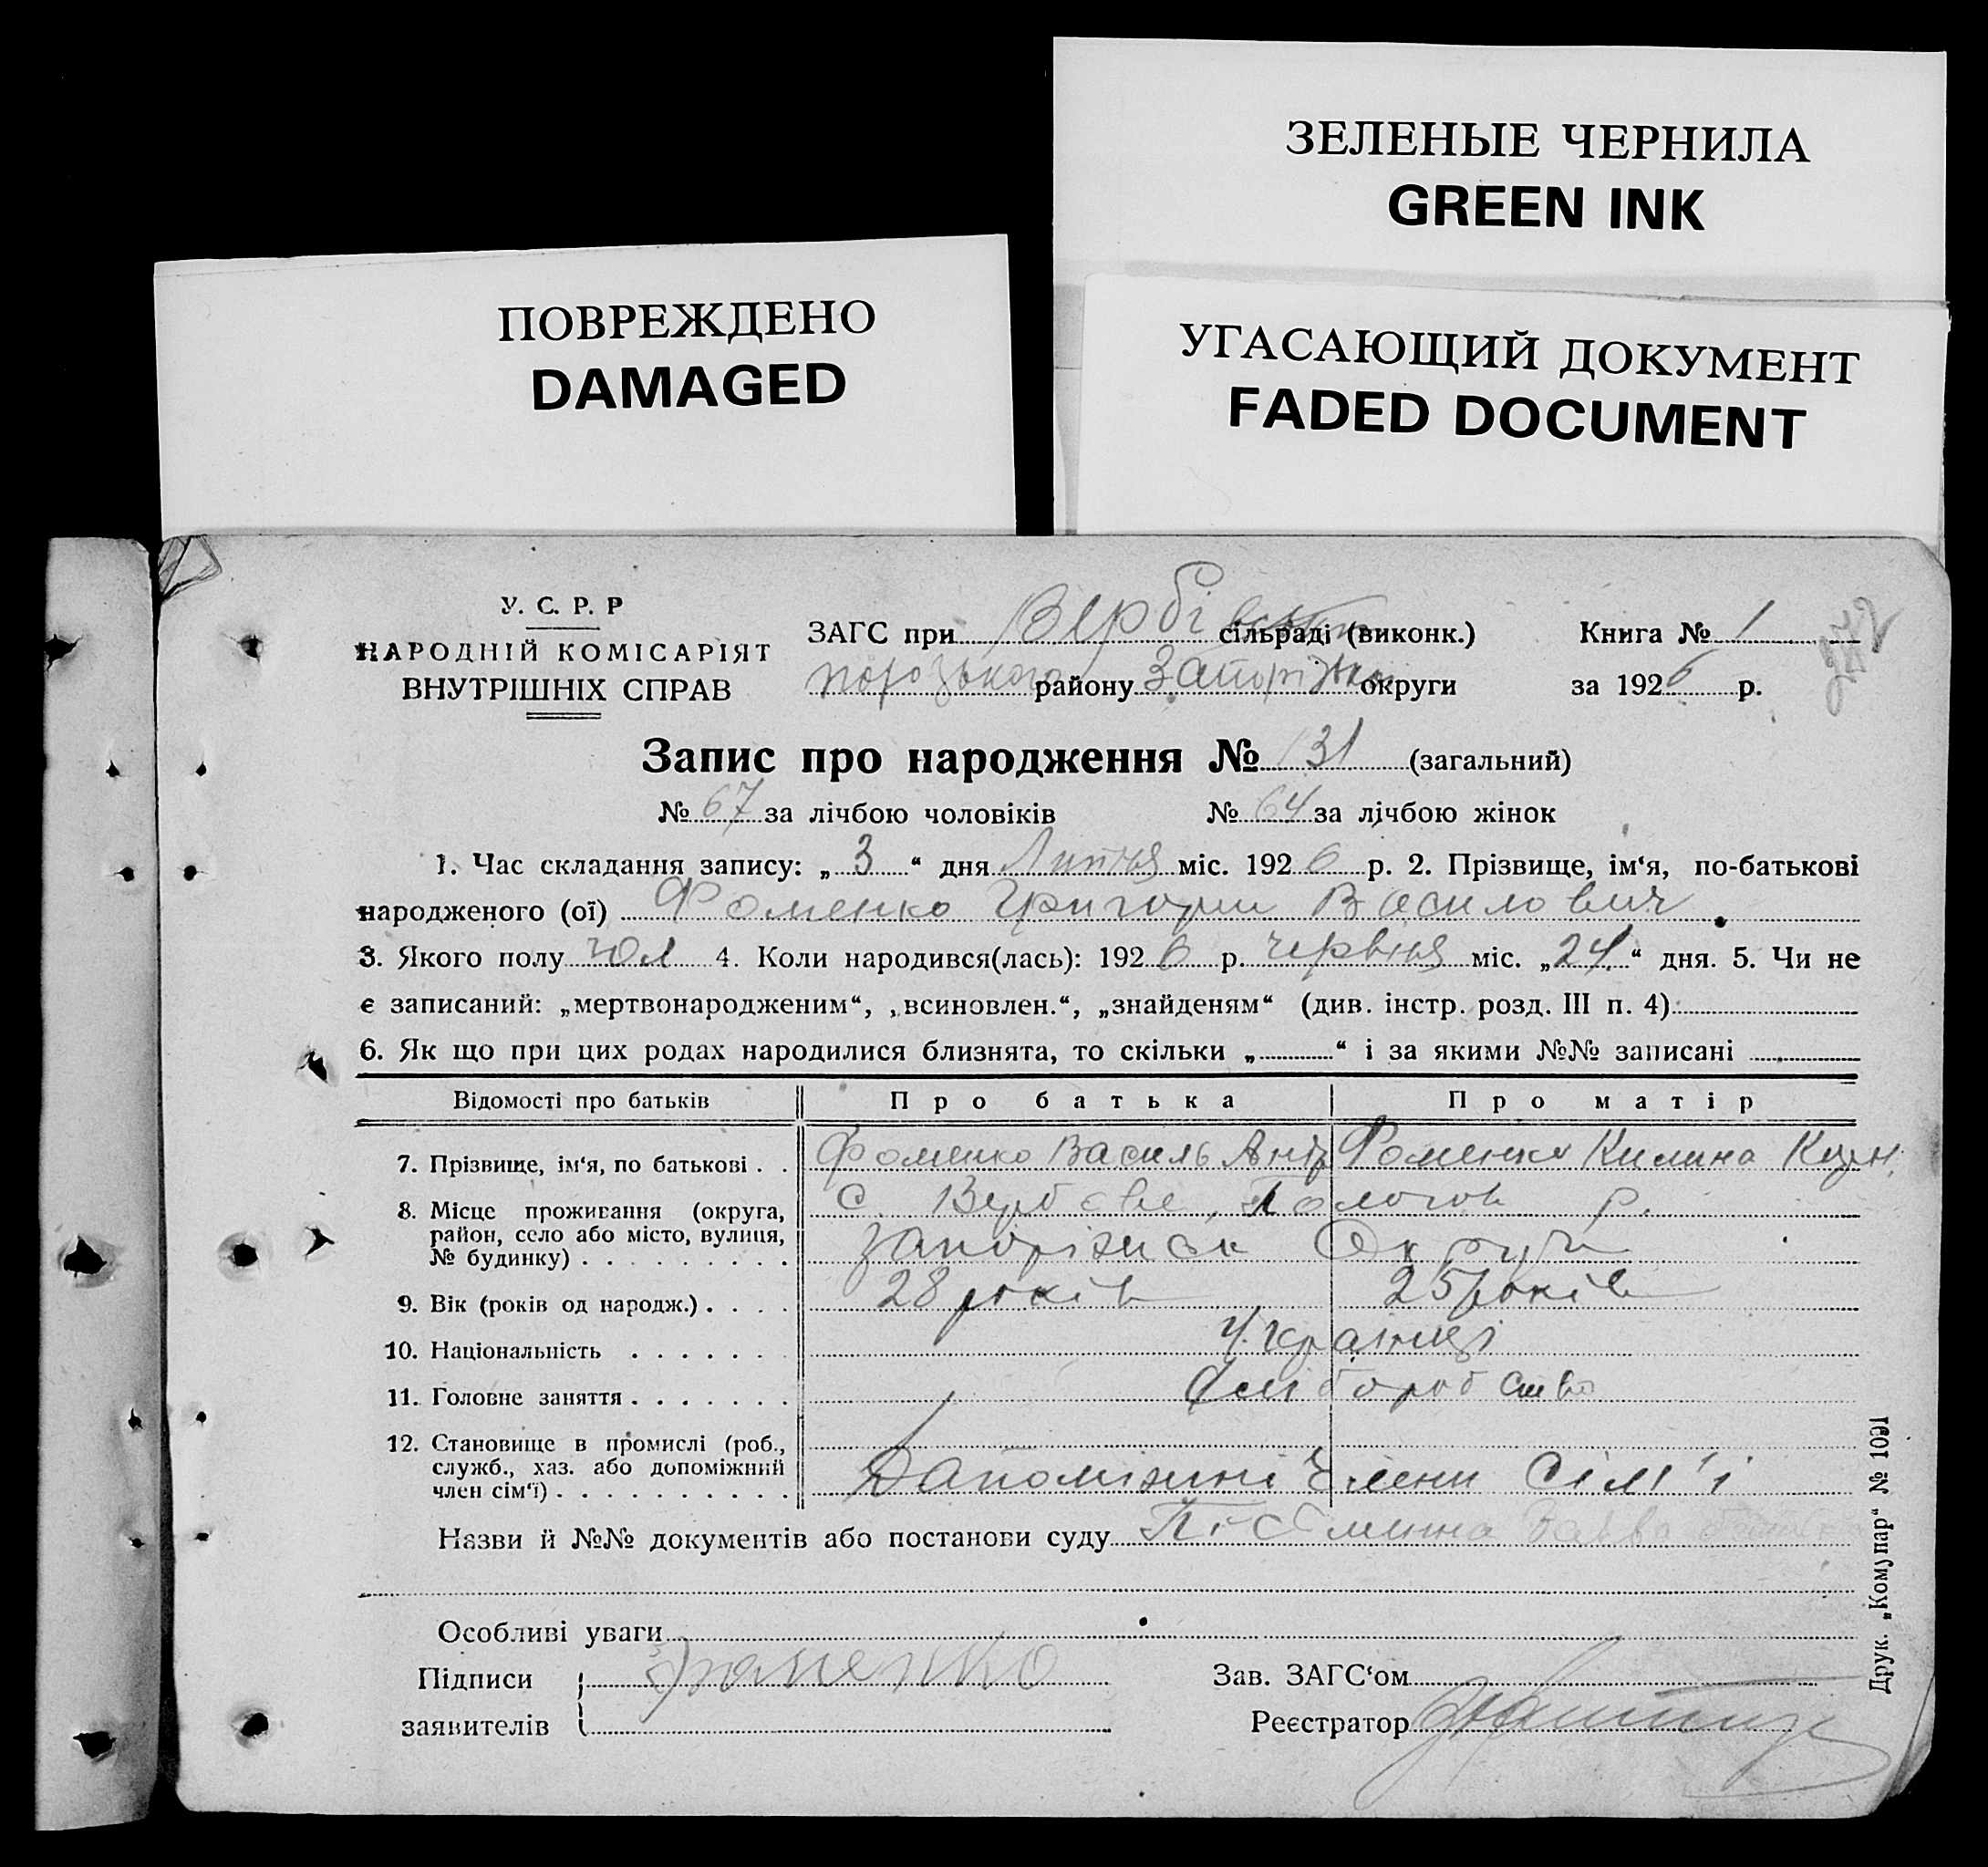 ЗЕЛЕНЫЕ ЧЕРНИЛА
GREEN INK
ПОВРЕЖДЕНО
DAMAGED
УГАСАЮЩИЙ ДОКУМЕНТ
FADED DOCUMENT
У. С. Р. Р
НАРОДНІЙ КОМІСАРІЯТ
ВНУТРІШНІХ СПРАВ
ЗАГС при сільраді (виконк.) Книга № 1
району округи за 1926 р.
Запис про народження № 131 (загальний)
№ 67 за лічбою чоловіків № 64 за лічбою жінок
1. Час складання запису: „3“ дня Липня міс. 1926 р. 2. Прізвище, ім‘я, по-батькові
народженого (ої) Фоменко Григорий Василович
3. Якого полу чол 4. Коли народився(лась): 1926 р. червня міс. „24“ дня. 5. Чи не
є записаний: „мертвонародженим“, „всиновлен.“, „знайденям“ (див. інстр. розд. III п. 4)
6. Як що при цих родах народилися близнята, то скільки „ “ і за якими №№ записані
Відомості про батьків Про батька Про матір
7. Прізвище, ім‘я, по батькові Фоменко Василь Фоменко Килина
8. Місце проживання (округа, район, село або місто, вулиця, № будинку) с. Р.
Округи
9. Вік (років од народж.) 28 років 25 років
10. Національність Українці
11. Головне заняття Хліборобство
12. Становище в промислі (роб., служб., хаз. або допоміжний член сім‘ї) Дапоміжні Члени Сім'ї
Назви й №№ документів або постанови суду
Особливі уваги
Підписи Фоменко Зав. ЗАГС‘ом
заявителів Реєстратор
Друк. „Комунар“ № 1091